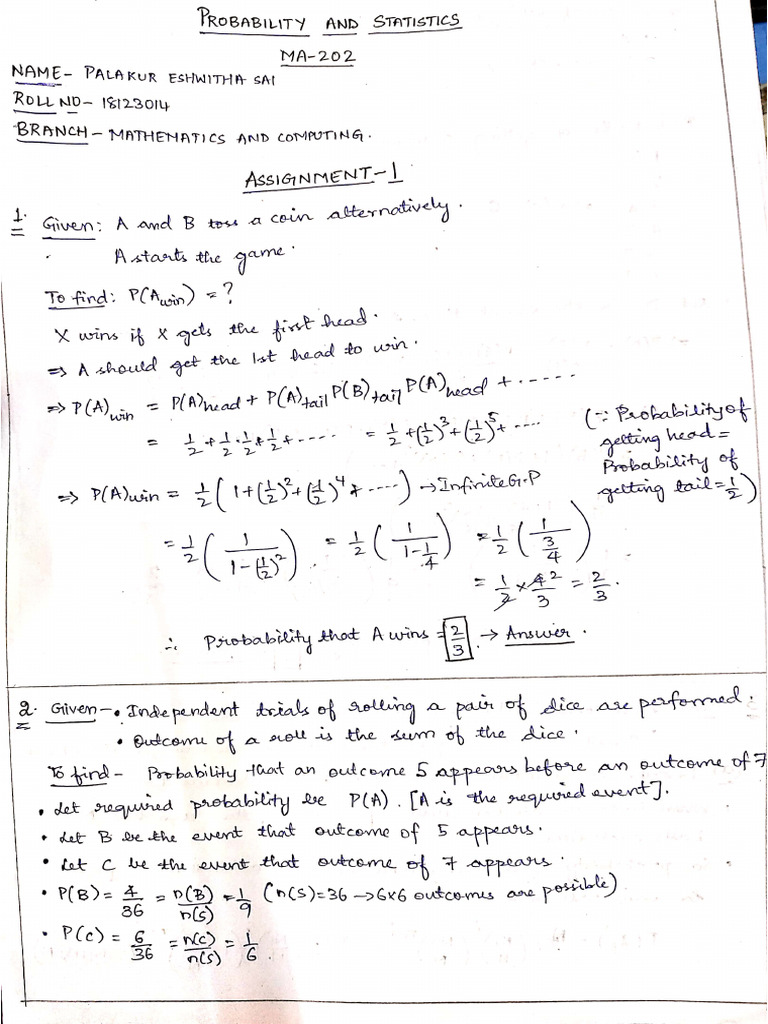 PROBABILITY AND STATISTICS
MA-202
NAME- PALAKUR ESHWITHA SAI
ROLL NO- 18123014
BRANCH- MATHEMATICS AND COMPUTING.
ASSIGNMENT-1
1. Given: A and B toss a coin alternatively.
A starts the game.
To find: P(A win) = ?
X wins if X gets the first head.
⇒ A should get the 1st head to win.
⇒ P(A)win = P(A)head + P(A)tail P(B)tail P(A)head + .....
= 1/2 + 1/2 . 1/2 . 1/2 + ..... = 1/2 + (1/2)^3 + (1/2)^5 + .... (∵ Probability of getting head = Probability of getting tail = 1/2)
⇒ P(A)win = 1/2 (1 + (1/2)^2 + (1/2)^4 + ....) → Infinite G.P
= 1/2 (1/(1-(1/2)^2)) = 1/2 (1/(1-1/4)) = 1/2 (1/(3/4))
= 1/2 × 4 2/3 = 2/3.
∴ Probability that A wins = 2/3 → Answer.
2. Given - • Independent trials of rolling a pair of dice are performed.
• Outcome of a roll is the sum of the dice.
To find - Probability that an outcome 5 appears before an outcome of 7
• Let required probability be P(A). [A is the required event].
• Let B be the event that outcome of 5 appears.
• Let C be the event that outcome of 7 appears.
• P(B) = 4/36 = n(B)/n(S) = 1/9 (n(S)=36 → 6x6 outcomes are possible)
• P(C) = 6/36 = n(C)/n(S) = 1/6